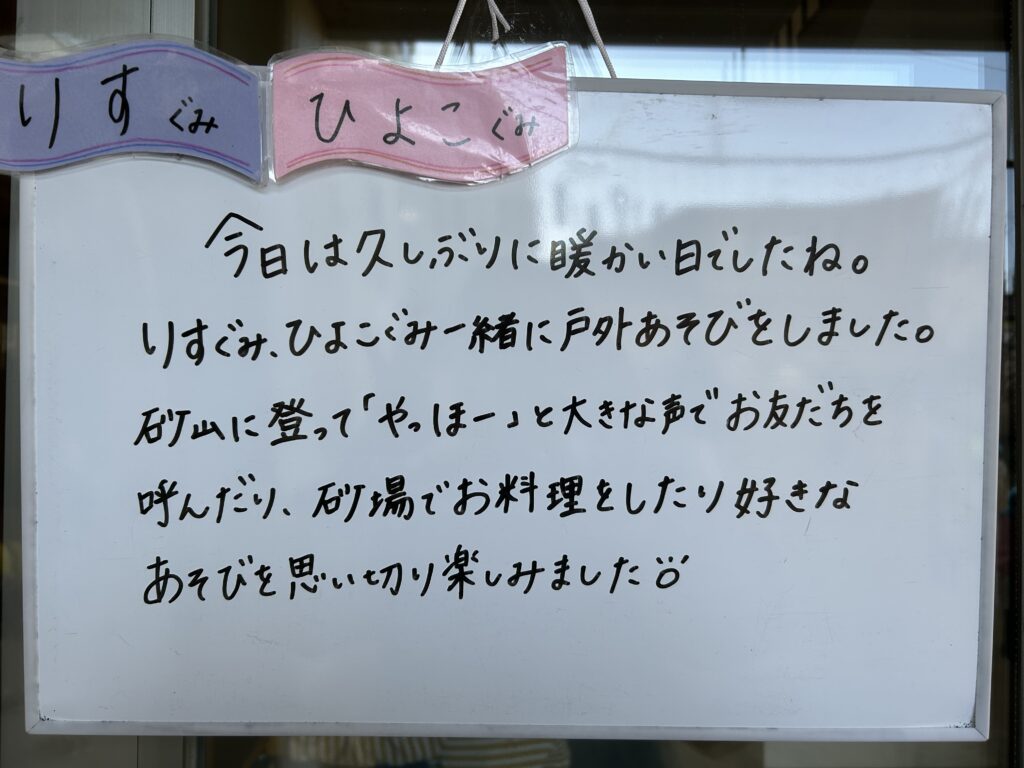 りすぐみ
ひよこぐみ
今日は久しぶりに暖かい日でしたね。
りすぐみ、ひよこぐみ一緒に戸外あそびをしました。
砂山に登って「やっほー」と大きな声でお友だちを
呼んだり、砂場でお料理をしたり好きな
あそびを思い切り楽しみました